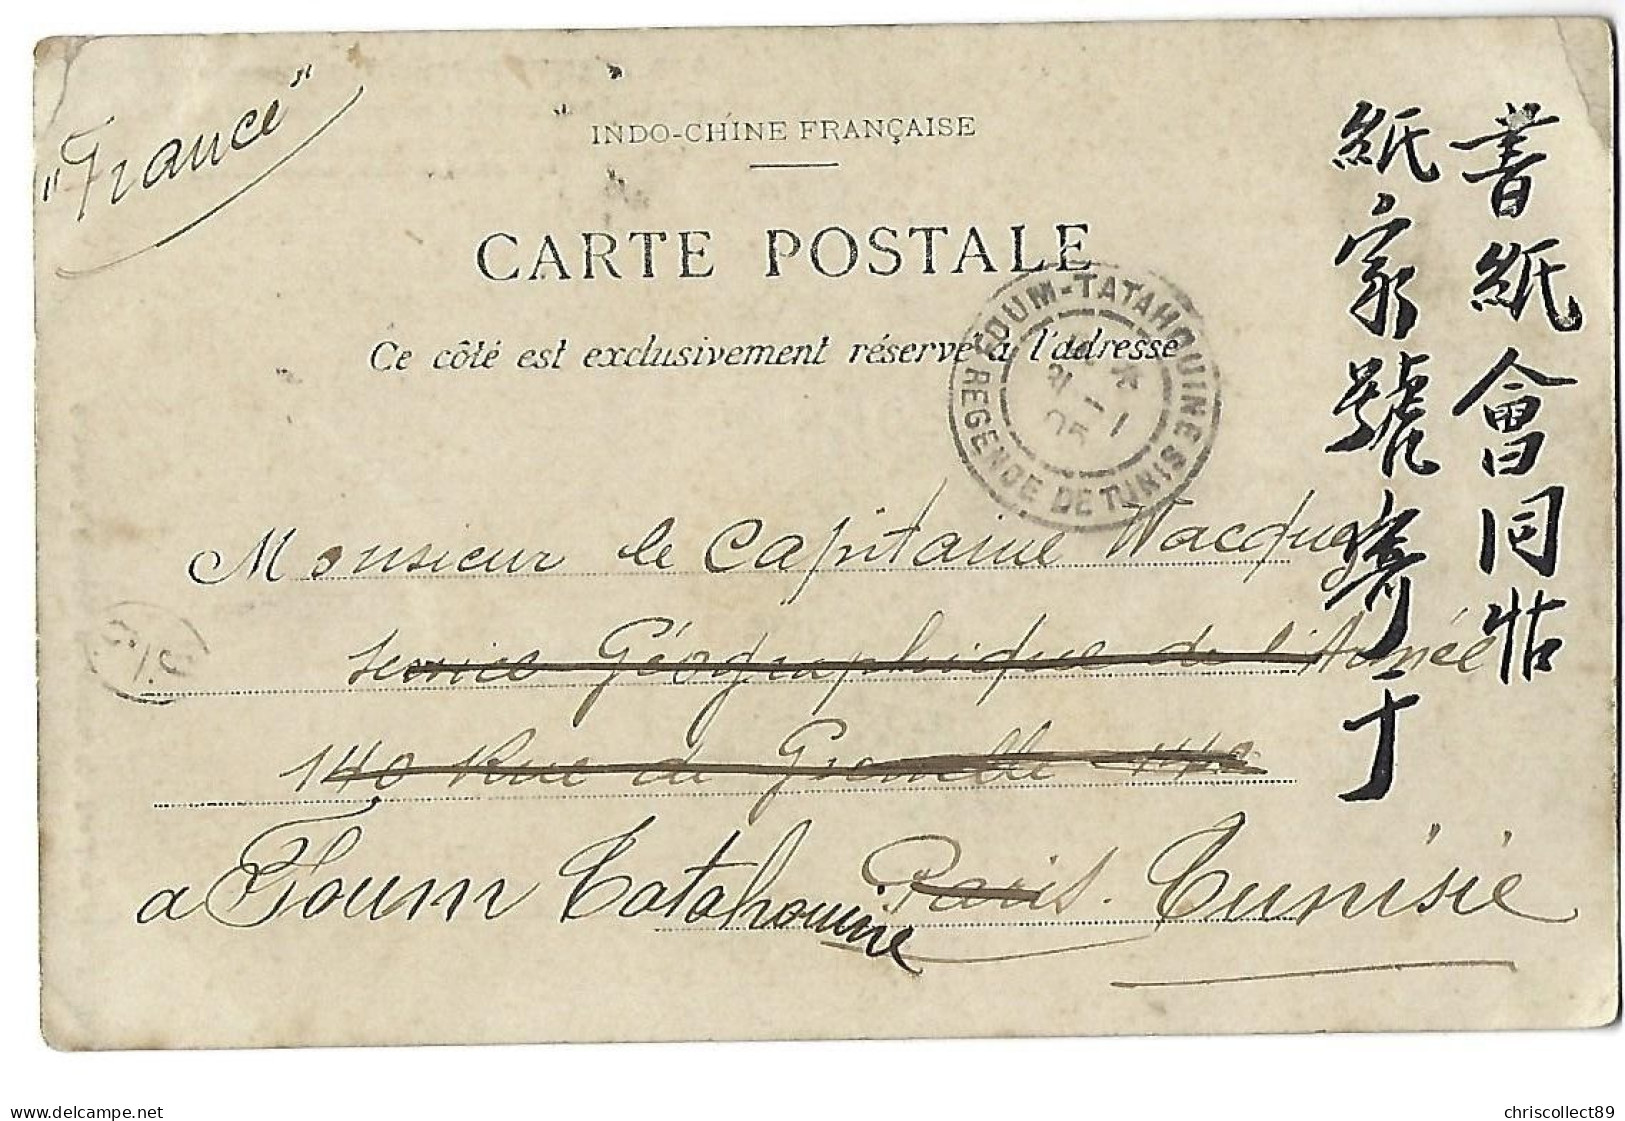 "France"
INDO-CHINE FRANÇAISE
CARTE POSTALE
Ce côté est exclusivement réservé à l'adresse
FOUM-TATAHOUINE
REGENCE DE TUNIS
Monsieur le Capitaine Wacquez
Service Géographique de l'Armée
140 Rue de Grenelle 140
Paris.
a Foum Tatahouine Tunisie
書紙會同
紙家號寄于
www.delcampe.net
chriscollect89